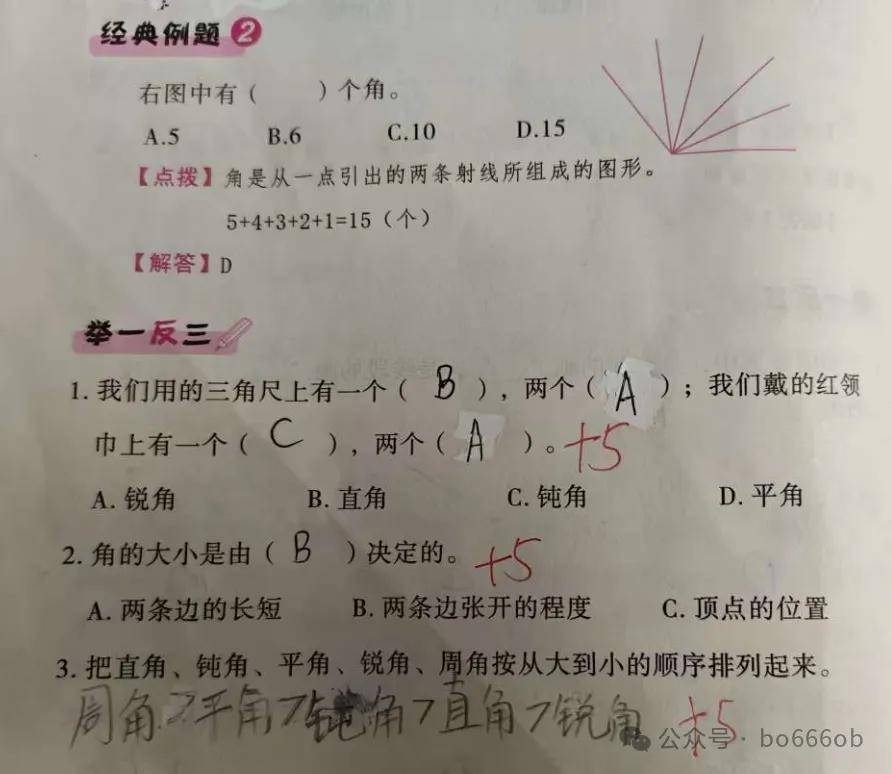 经典例题 2
右图中有（  ）个角。
A.5 B.6 C.10 D.15
【点拨】角是从一点引出的两条射线所组成的图形。
5+4+3+2+1=15（个）
【解答】D
举一反三
1. 我们用的三角尺上有一个（ B ），两个（ A ）；我们戴的红领
巾上有一个（ C ），两个（ A ）。+5
A. 锐角 B. 直角 C. 钝角 D. 平角
2. 角的大小是由（ B ）决定的。+5
A. 两条边的长短 B. 两条边张开的程度 C. 顶点的位置
3. 把直角、钝角、平角、锐角、周角按从大到小的顺序排列起来。
周角>平角>钝角>直角>锐角 +5
公众号 · bo666ob